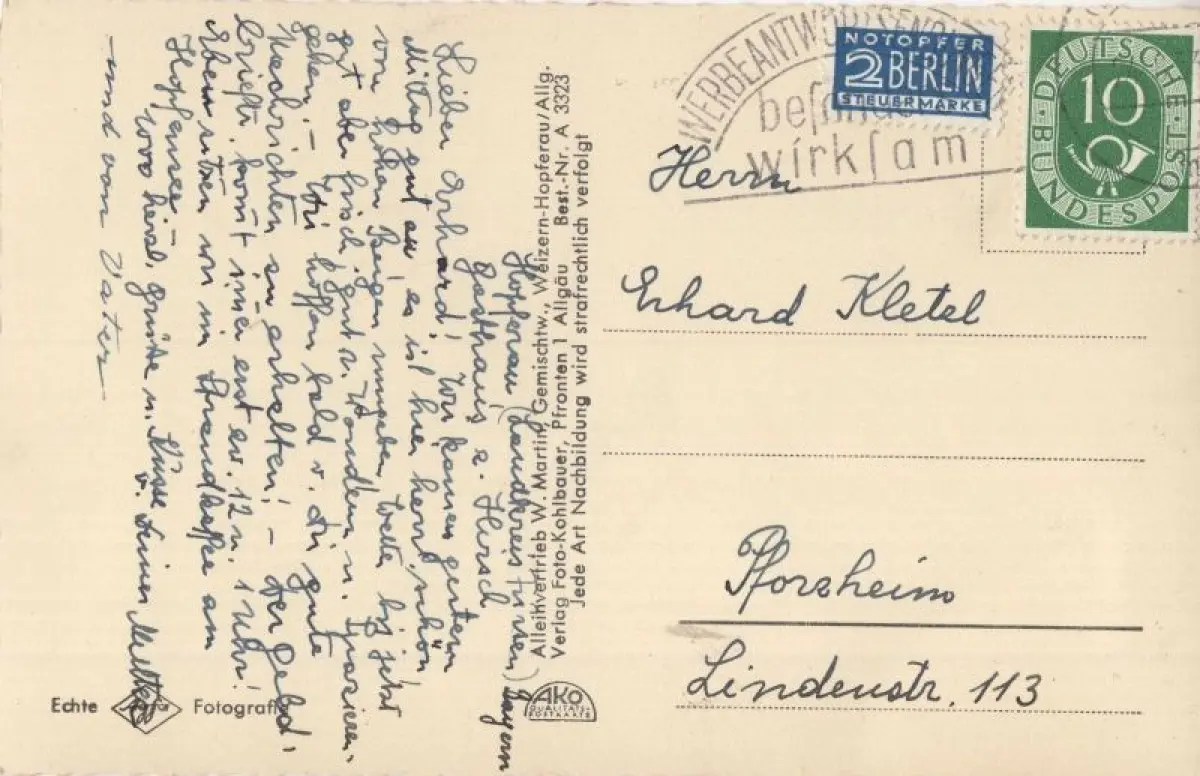 Hopferau (Landkreis Füssen) Bayern
Gasthaus z. Hirsch
Lieber Erhard! Wir kamen gestern
Mittag gut an es ist hier herrl. schön
von hohen Bergen umgeben, Wetter bis jetzt
gut aber frisch, gut z. Wandern u. Spazieren-
gehen. – Wir hoffen bald v. Dir gute
Nachrichten zu erhalten! – Der Geld-
brieftr. kommt immer erst zw. 12 u. 1 Uhr!
Eben sitzen wir im Strandkaffee am
Hopfensee.
1000 herzl. Grüße u. Küsse
v. Deiner Mutter
– und von Vater –
Alleinvertrieb W. Martin, Gemischtw., Weizern-Hopferau/Allg.
Verlag Foto-Kohlbauer, Pfronten 1 Allgäu Best.-Nr. A 3323
Jede Art Nachbildung wird strafrechtlich verfolgt
Echte Fotografie
AKO
QUALITÄTS-
POSTKARTE
WERBEANTWORTSENDUNGEN
wirksam
NOTOPFER
2 BERLIN
STEUERMARKE
DEUTSCHE
10
BUNDESPOST
Herrn
Erhard Kletel
Pforzheim
Lindenstr. 113